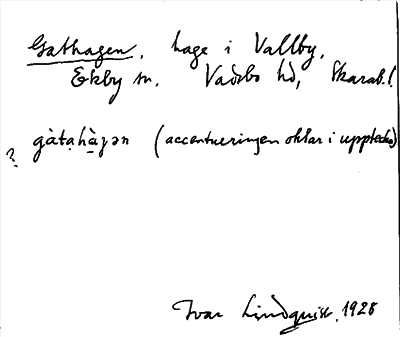 Gathagen, hage i Vallby,
Ekby sn. Vadsbo hd, Skarab. l.
? gàtạhàgən (accentueringen oklar i uppteckn)
Ivar Lindquist. 1928